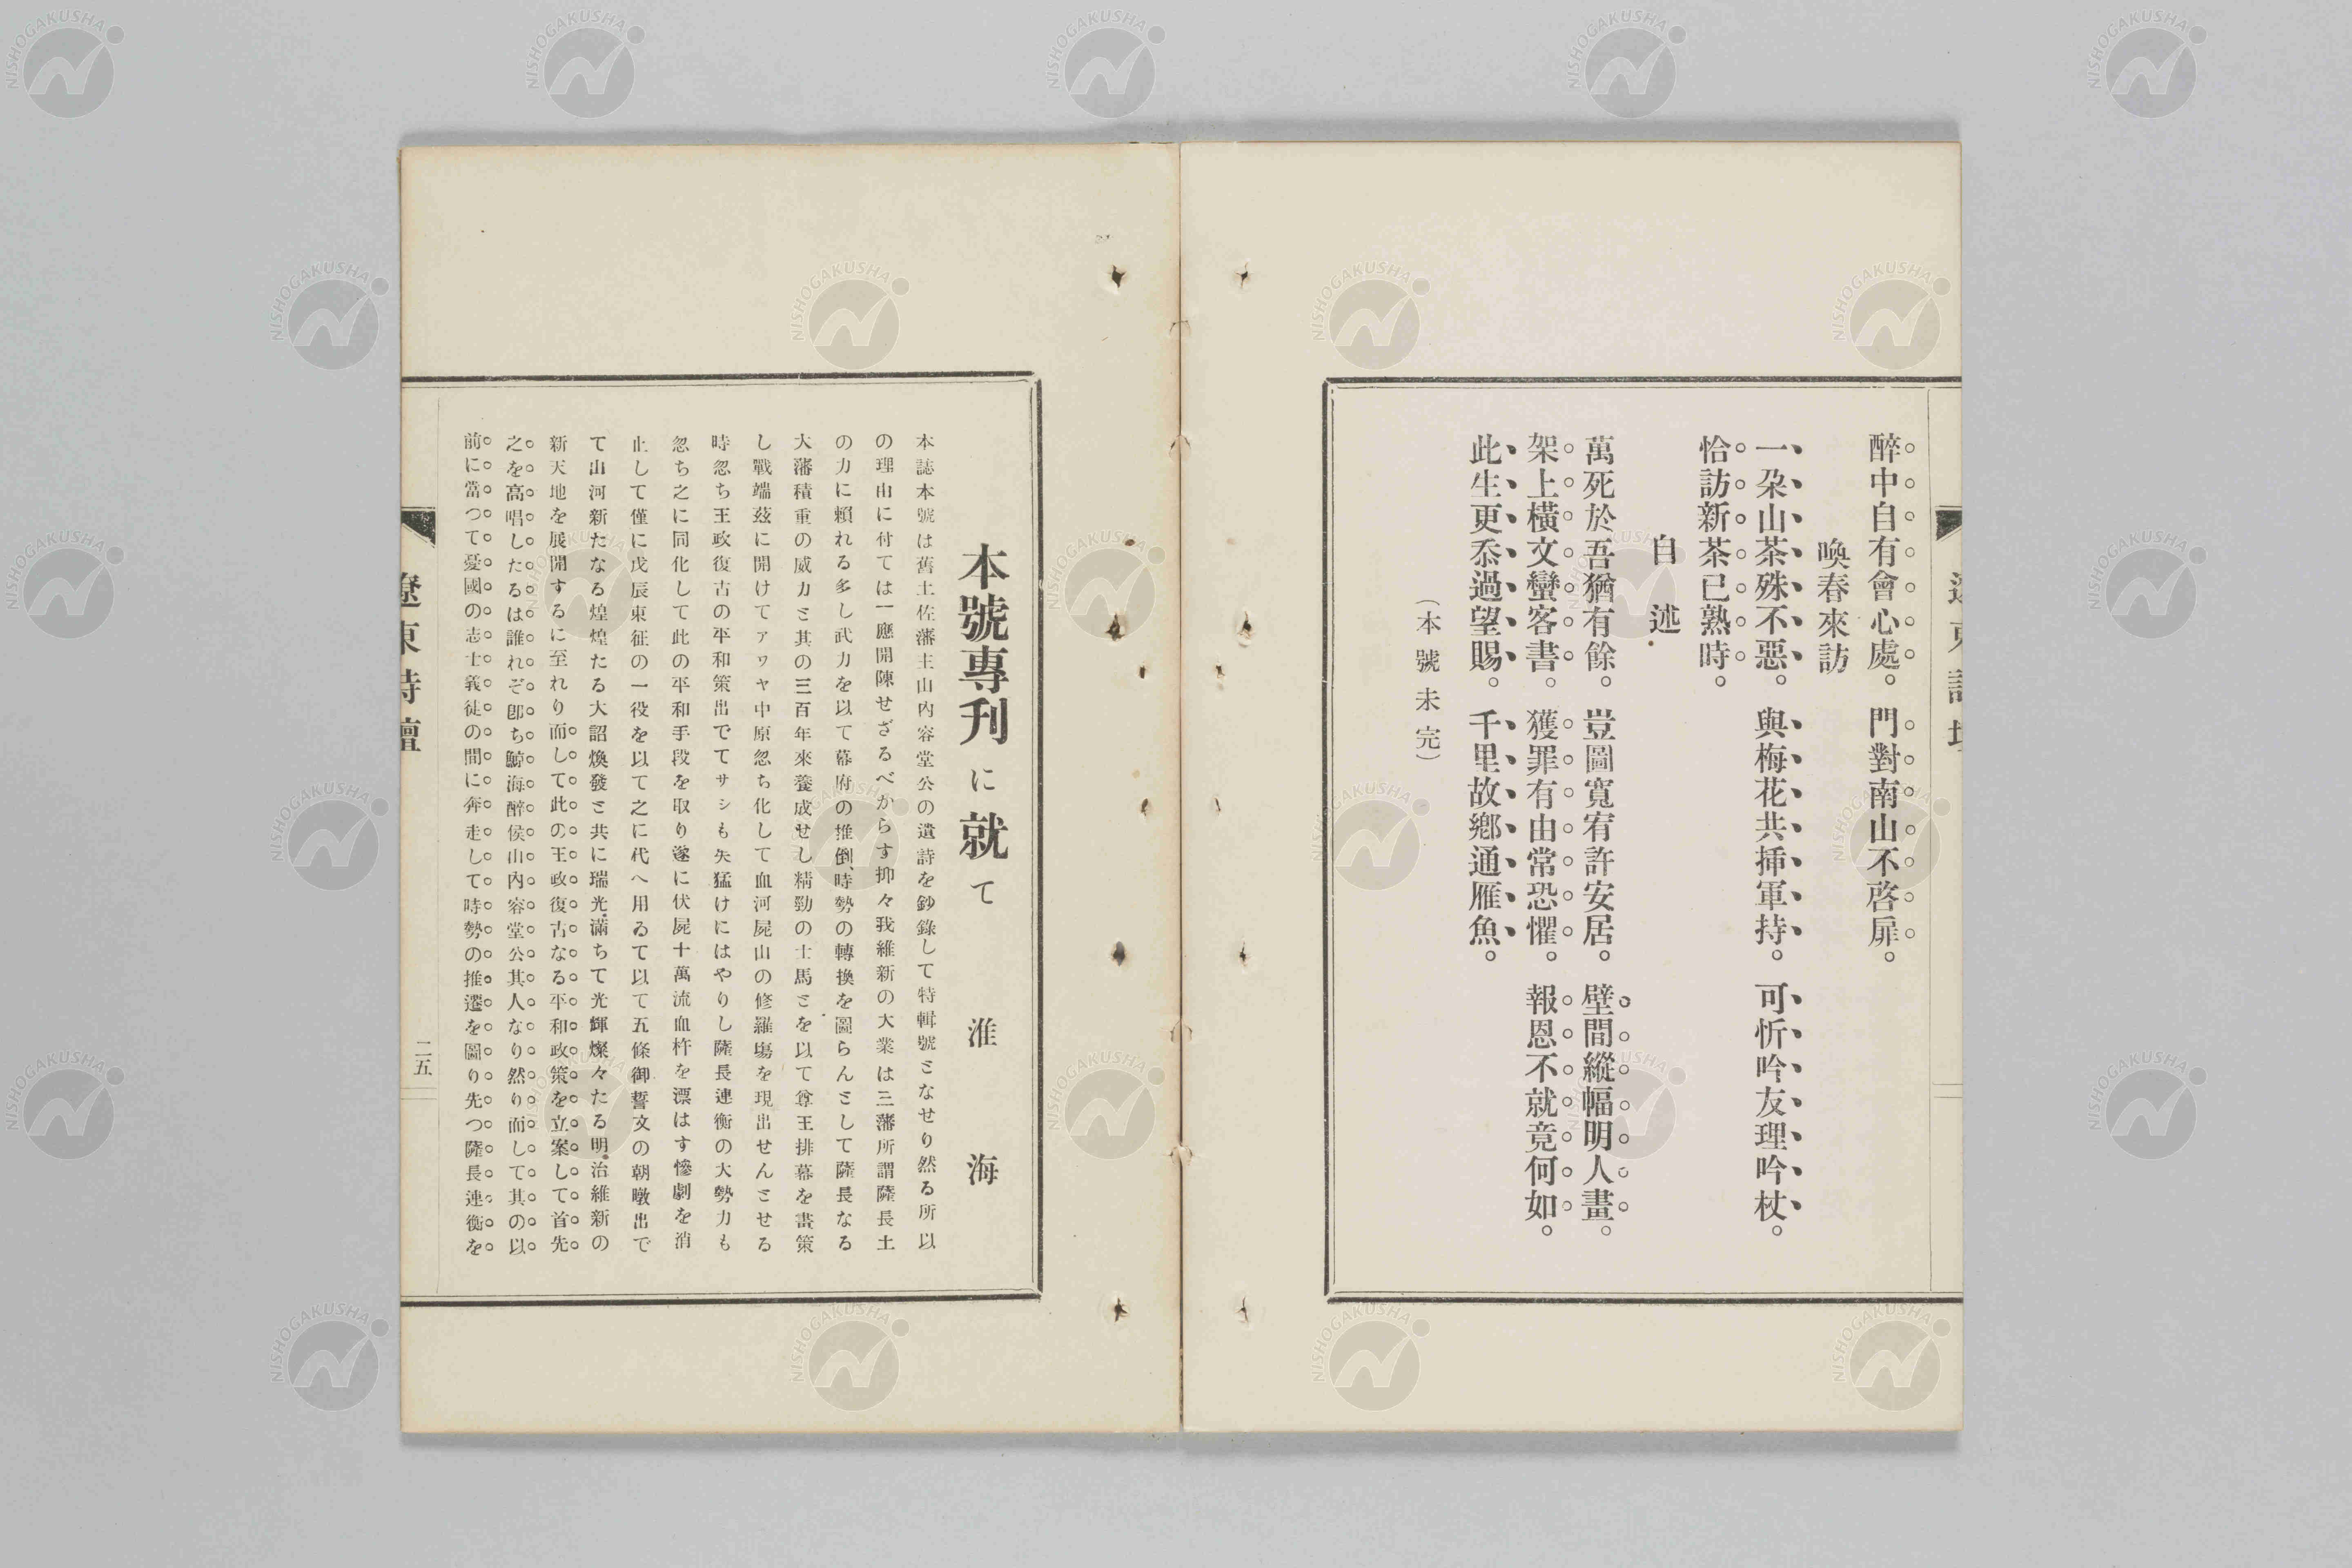 醉中自有會心處。門對南山不啓扉。
喚春來訪
一朶山茶殊不惡。與梅花共揷軍持。可忻吟友理吟杖。
恰訪新茶已熟時。
自述
萬死於吾猶有餘。豈圖寬宥許安居。壁間縱幅明人畫。
架上橫文蠻客書。獲罪有由常恐懼。報恩不就竟何如。
此生更忝過望賜。千里故鄕通雁魚。
（本號未完）
本號專刊に就て
淮海
本誌本號は舊土佐藩主山內容堂公の遺詩を鈔錄して特輯號となせり然る所以
の理由に付ては一應開陳せざるべからす抑々我維新の大業は三藩所謂薩長土
の力に賴れる多し武力を以て幕府の推倒、時勢の轉換を圖らんとして薩長なる
大藩積重の威力と其の三百年來養成せし精勁の士馬とを以て尊王排幕を畵策
し戰端玆に開けてアワヤ中原忽ち化して血河屍山の修羅塲を現出せんとせる
時忽ち王政復古の平和策出でてサシも失猛けにはやりし薩長連衡の大勢力も
忽ち之に同化して此の平和手段を取り遂に伏屍十萬流血杵を漂はす慘劇を消
止して僅に戊辰東征の一役を以て之に代へ用ゐて以て五條御誓文の朝暾出で
て山河新たなる煌煌たる大詔煥發と共に瑞光滿ちて光輝燦々たる明治維新の
新天地を展開するに至れり而して此の王政復古なる平和政策を立案して首先
之を高唱したるは誰れぞ卽ち鯨海醉侯山內容堂公其人なり然り而して其の以
前に當つて憂國の志士義徒の間に奔走して時勢の推遷を圖り先つ薩長連衡を
遼東詩壇
二五
NISHOGAKUSHA